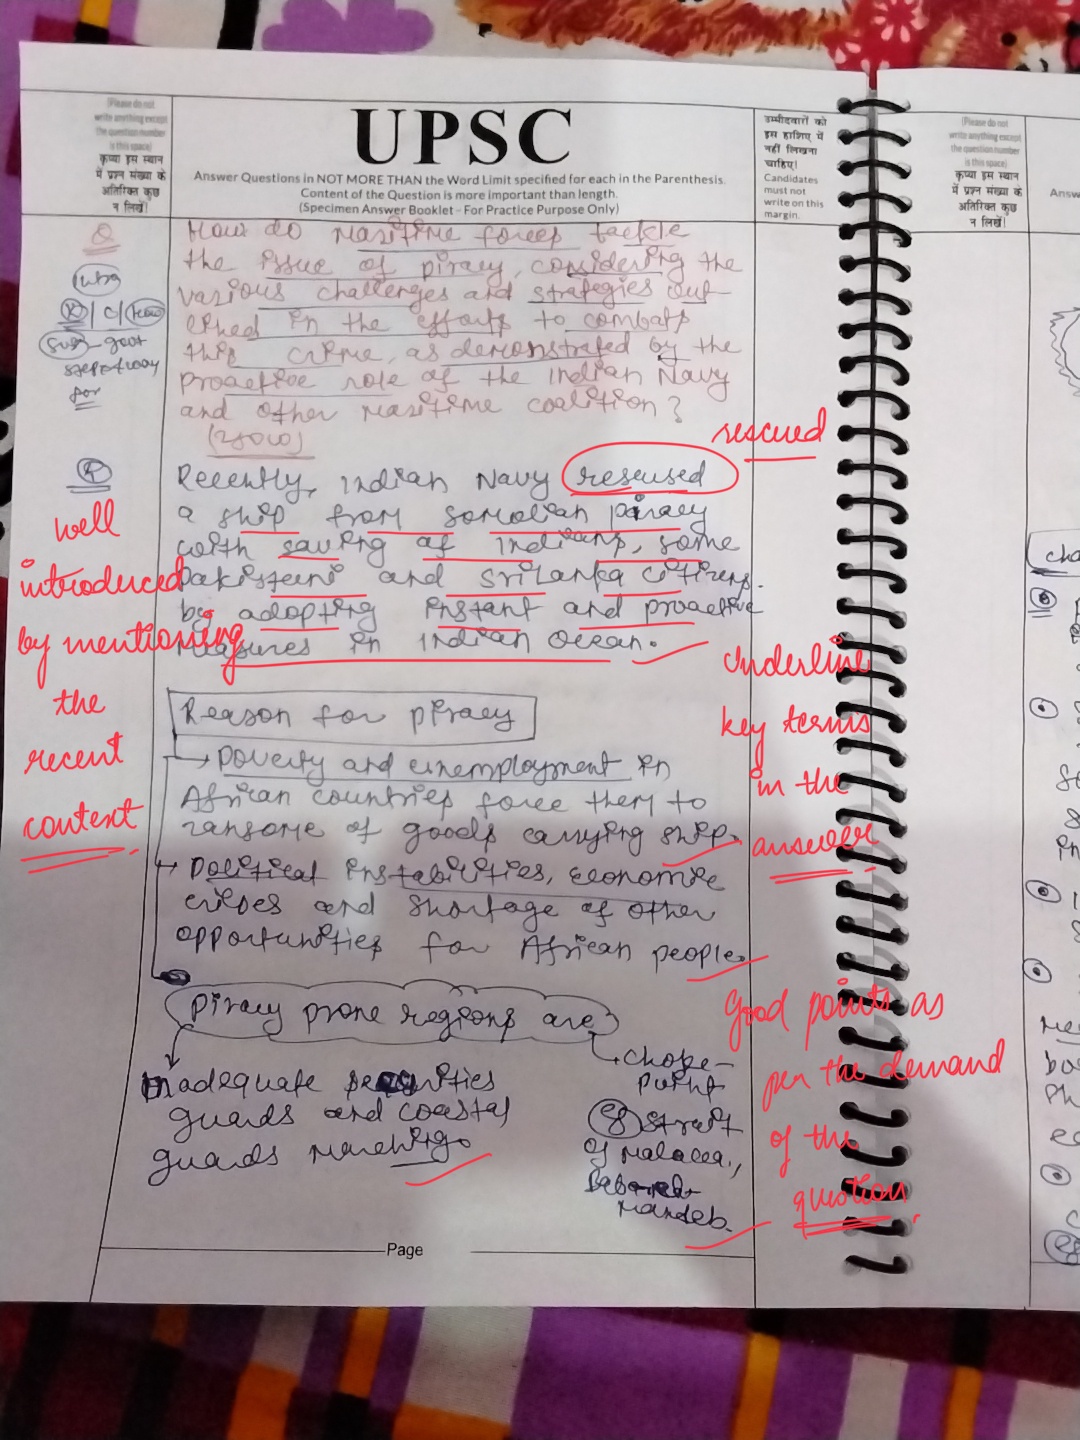 (Please do not
write anything except
the question number
is this space)
कृप्या इस स्थान
में प्रश्न संख्या के
अतिरिक्त कुछ
न लिखें।
UPSC
Answer Questions in NOT MORE THAN the Word Limit specified for each in the Parenthesis.
Content of the Question is more important than length.
(Specimen Answer Booklet - For Practice Purpose Only)
उम्मीदवारों को
इस हाशिए में
नहीं लिखना
चाहिए।
Candidates
must not
write on this
margin.
Q
Intro
R/C/
Sug - govt
step & way
for
How do maritime forces tackle
the issue of piracy, considering the
various challenges and strategies out
lined in the efforts to combat
this crime, as demonstrated by the
proactive role of the Indian Navy
and other maritime coalition?
R
Recently, Indian Navy reseused
rescued
a ship from somolian piracy
with saving of Indians, some
Pakistani and Srilanka citizens.
by adopting instant and proactive
measures in Indian Ocean.
well
introduced
by mentioning
the
recent
context.
Underline
key terms
in the
answer
Reason for piracy
→ Poverty and unemployment in
African countries force them to
ransome of goods carrying ship.
→ Political instabilities, economic
crises and shortage of other
opportunities for African people.
Piracy prone regions are
Inadequate
guards and coastal
guards
choke-
point
eg Strait
of Malacca,
Mandeb.
Good points as
per the demand
of the
question.
Page
(Please do not
write anything except
the question number
is this space)
कृप्या इस स्थान
में प्रश्न संख्या के
अतिरिक्त कुछ
न लिखें।
Answ